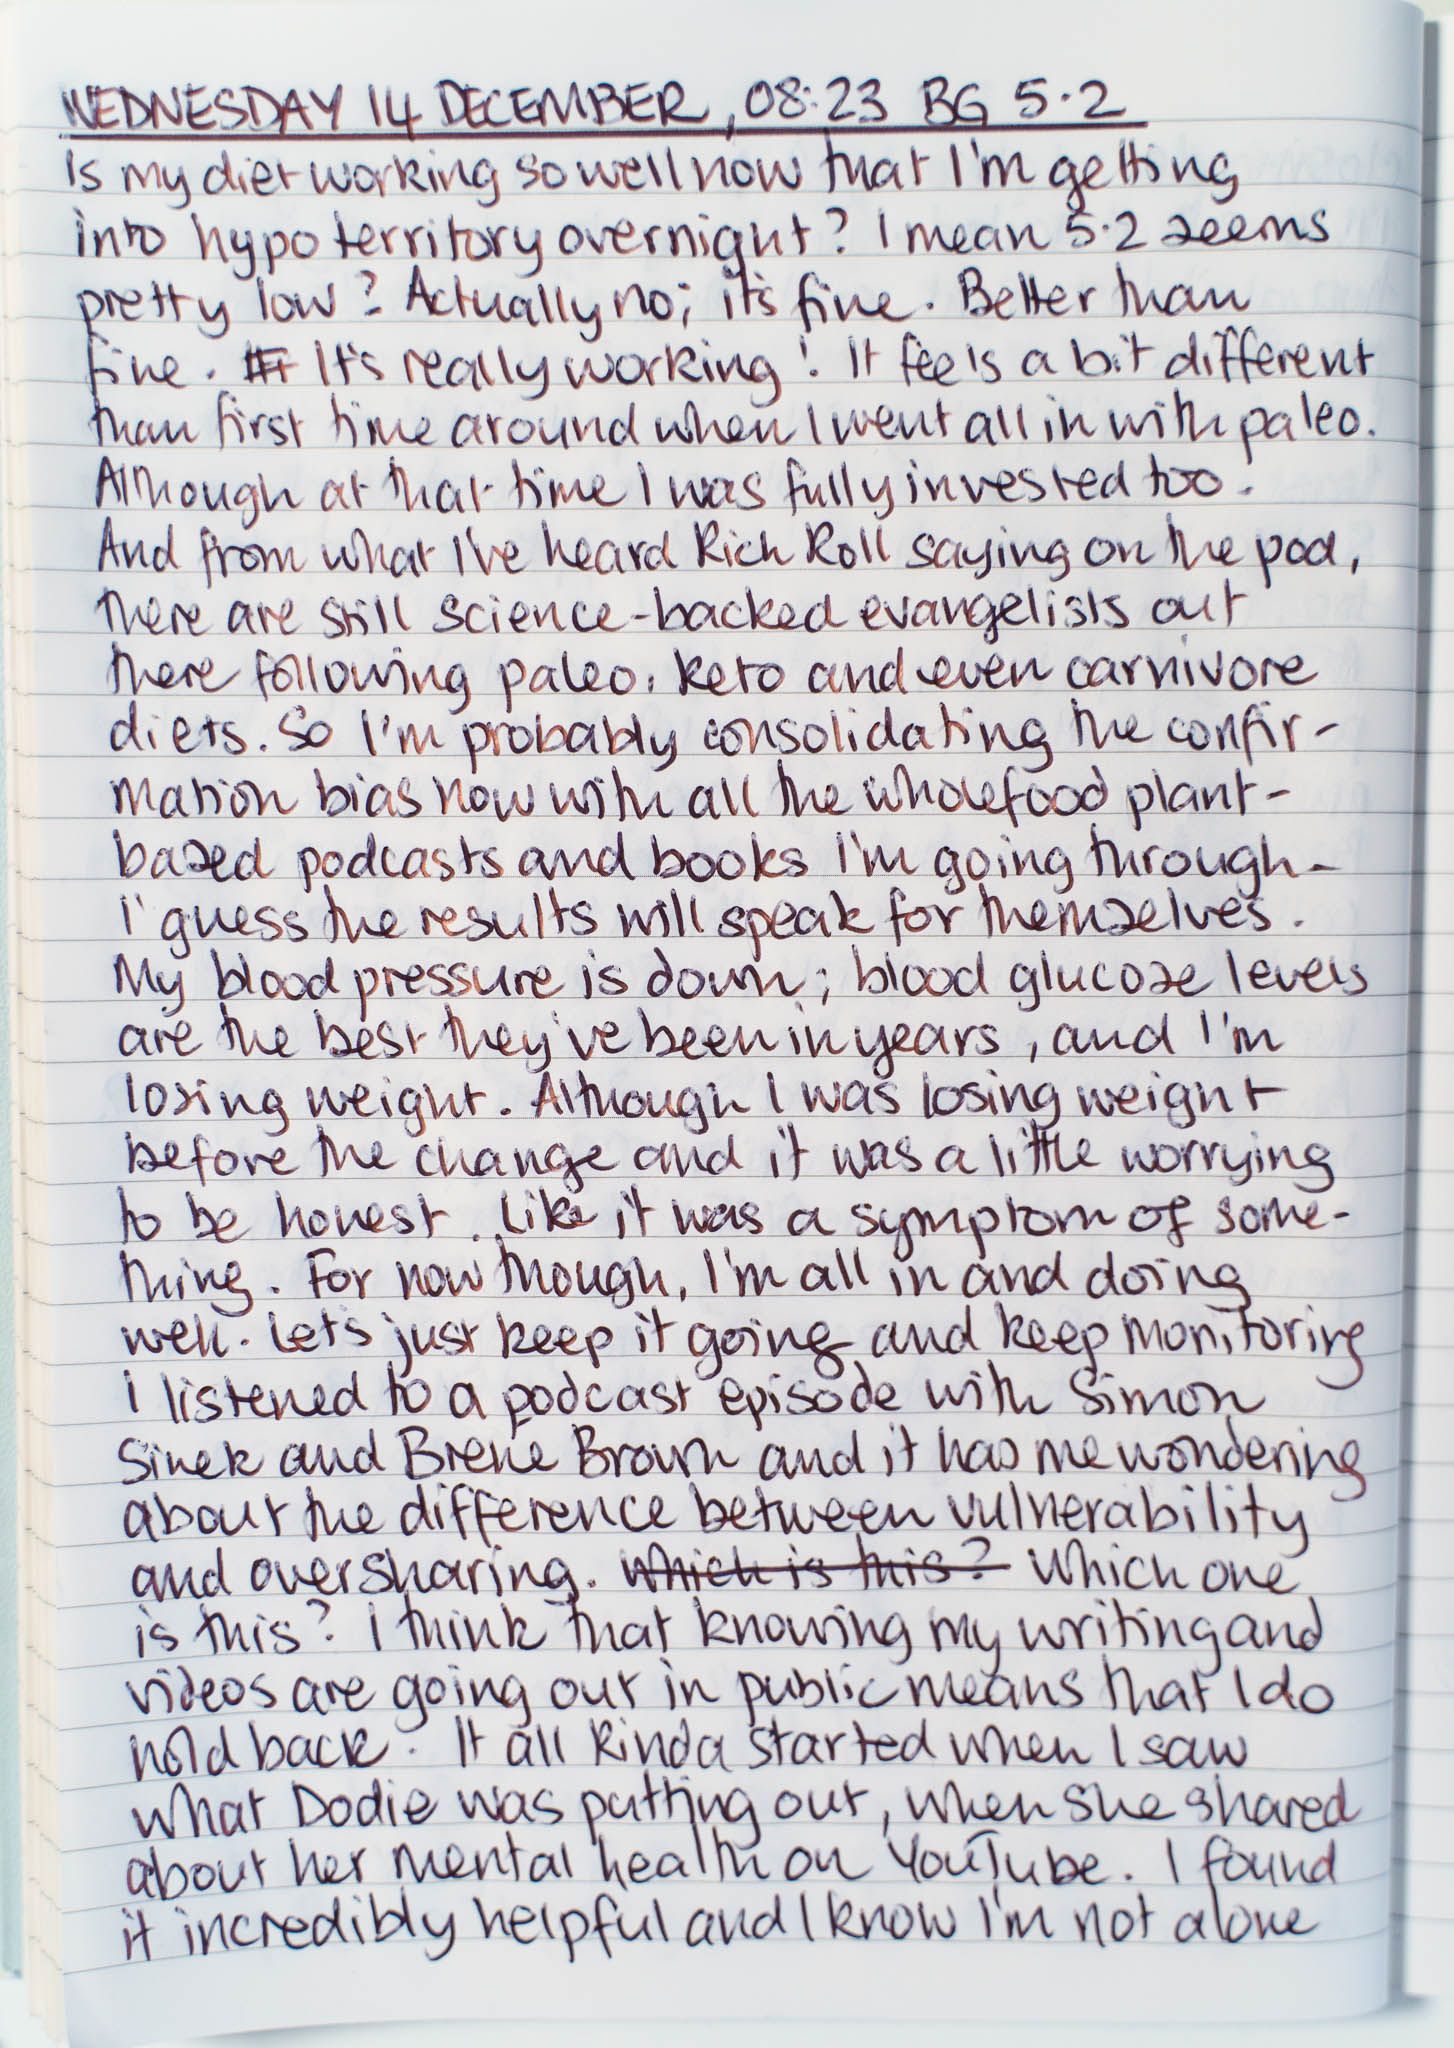 WEDNESDAY 14 DECEMBER, 08:23 BG 5.2
Is my diet working so well now that I'm getting
into hypo territory overnight? I mean 5.2 seems
pretty low? Actually no; it's fine. Better than
fine. It's really working! It feels a bit different
than first time around when I went all in with paleo.
Although at that time I was fully invested too.
And from what I've heard Rich Roll saying on the pod,
there are still science-backed evangelists out
there following paleo, keto and even carnivore
diets. So I'm probably consolidating the confir-
mation bias now with all the wholefood plant-
based podcasts and books I'm going through -
I guess the results will speak for themselves.
My blood pressure is down; blood glucose levels
are the best they've been in years, and I'm
losing weight. Although I was losing weight
before the change and it was a little worrying
to be honest. Like it was a symptom of some-
thing. For now though, I'm all in and doing
well. Let's just keep it going and keep monitoring
I listened to a podcast episode with Simon
Sinek and Brene Brown and it has me wondering
about the difference between vulnerability
and oversharing. Which is this? Which one
is this? I think that knowing my writing and
videos are going out in public means that I do
hold back. It all kinda started when I saw
what Dodie was putting out, when she shared
about her mental health on YouTube. I found
it incredibly helpful and I know I'm not alone